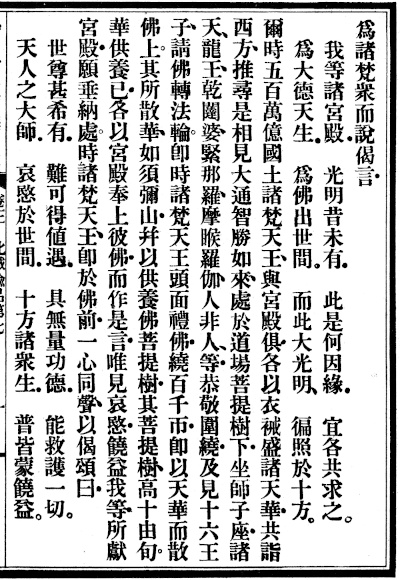 爲諸梵衆而說偈言
我等諸宮殿。光明昔未有。此是何因緣。宜各共求之。
爲大德天生。爲佛出世間。而此大光明、徧照於十方。
爾時五百萬億國土諸梵天王、與宮殿俱、各以衣裓盛諸天華、共詣
西方推尋是相、見大通智勝如來、處於道場菩提樹下、坐師子座、諸
天龍王乾闥婆緊那羅摩睺羅伽人非人等、恭敬圍繞、及見十六王
子請佛轉法輪。卽時諸梵天王頭面禮佛、繞百千帀、卽以天華而散
佛上。其所散華、如須彌山、幷以供養佛菩提樹、其菩提樹、高十由旬。
華供養已、各以宮殿奉上彼佛、而作是言、唯見哀愍饒益我等、所獻
宮殿、願垂納處。時諸梵天王、卽於佛前、一心同聲、以偈頌曰、
世尊甚希有。難可得值遇。具無量功德。能救護一切。
天人之大師。哀愍於世間。十方諸衆生。普皆蒙饒益。